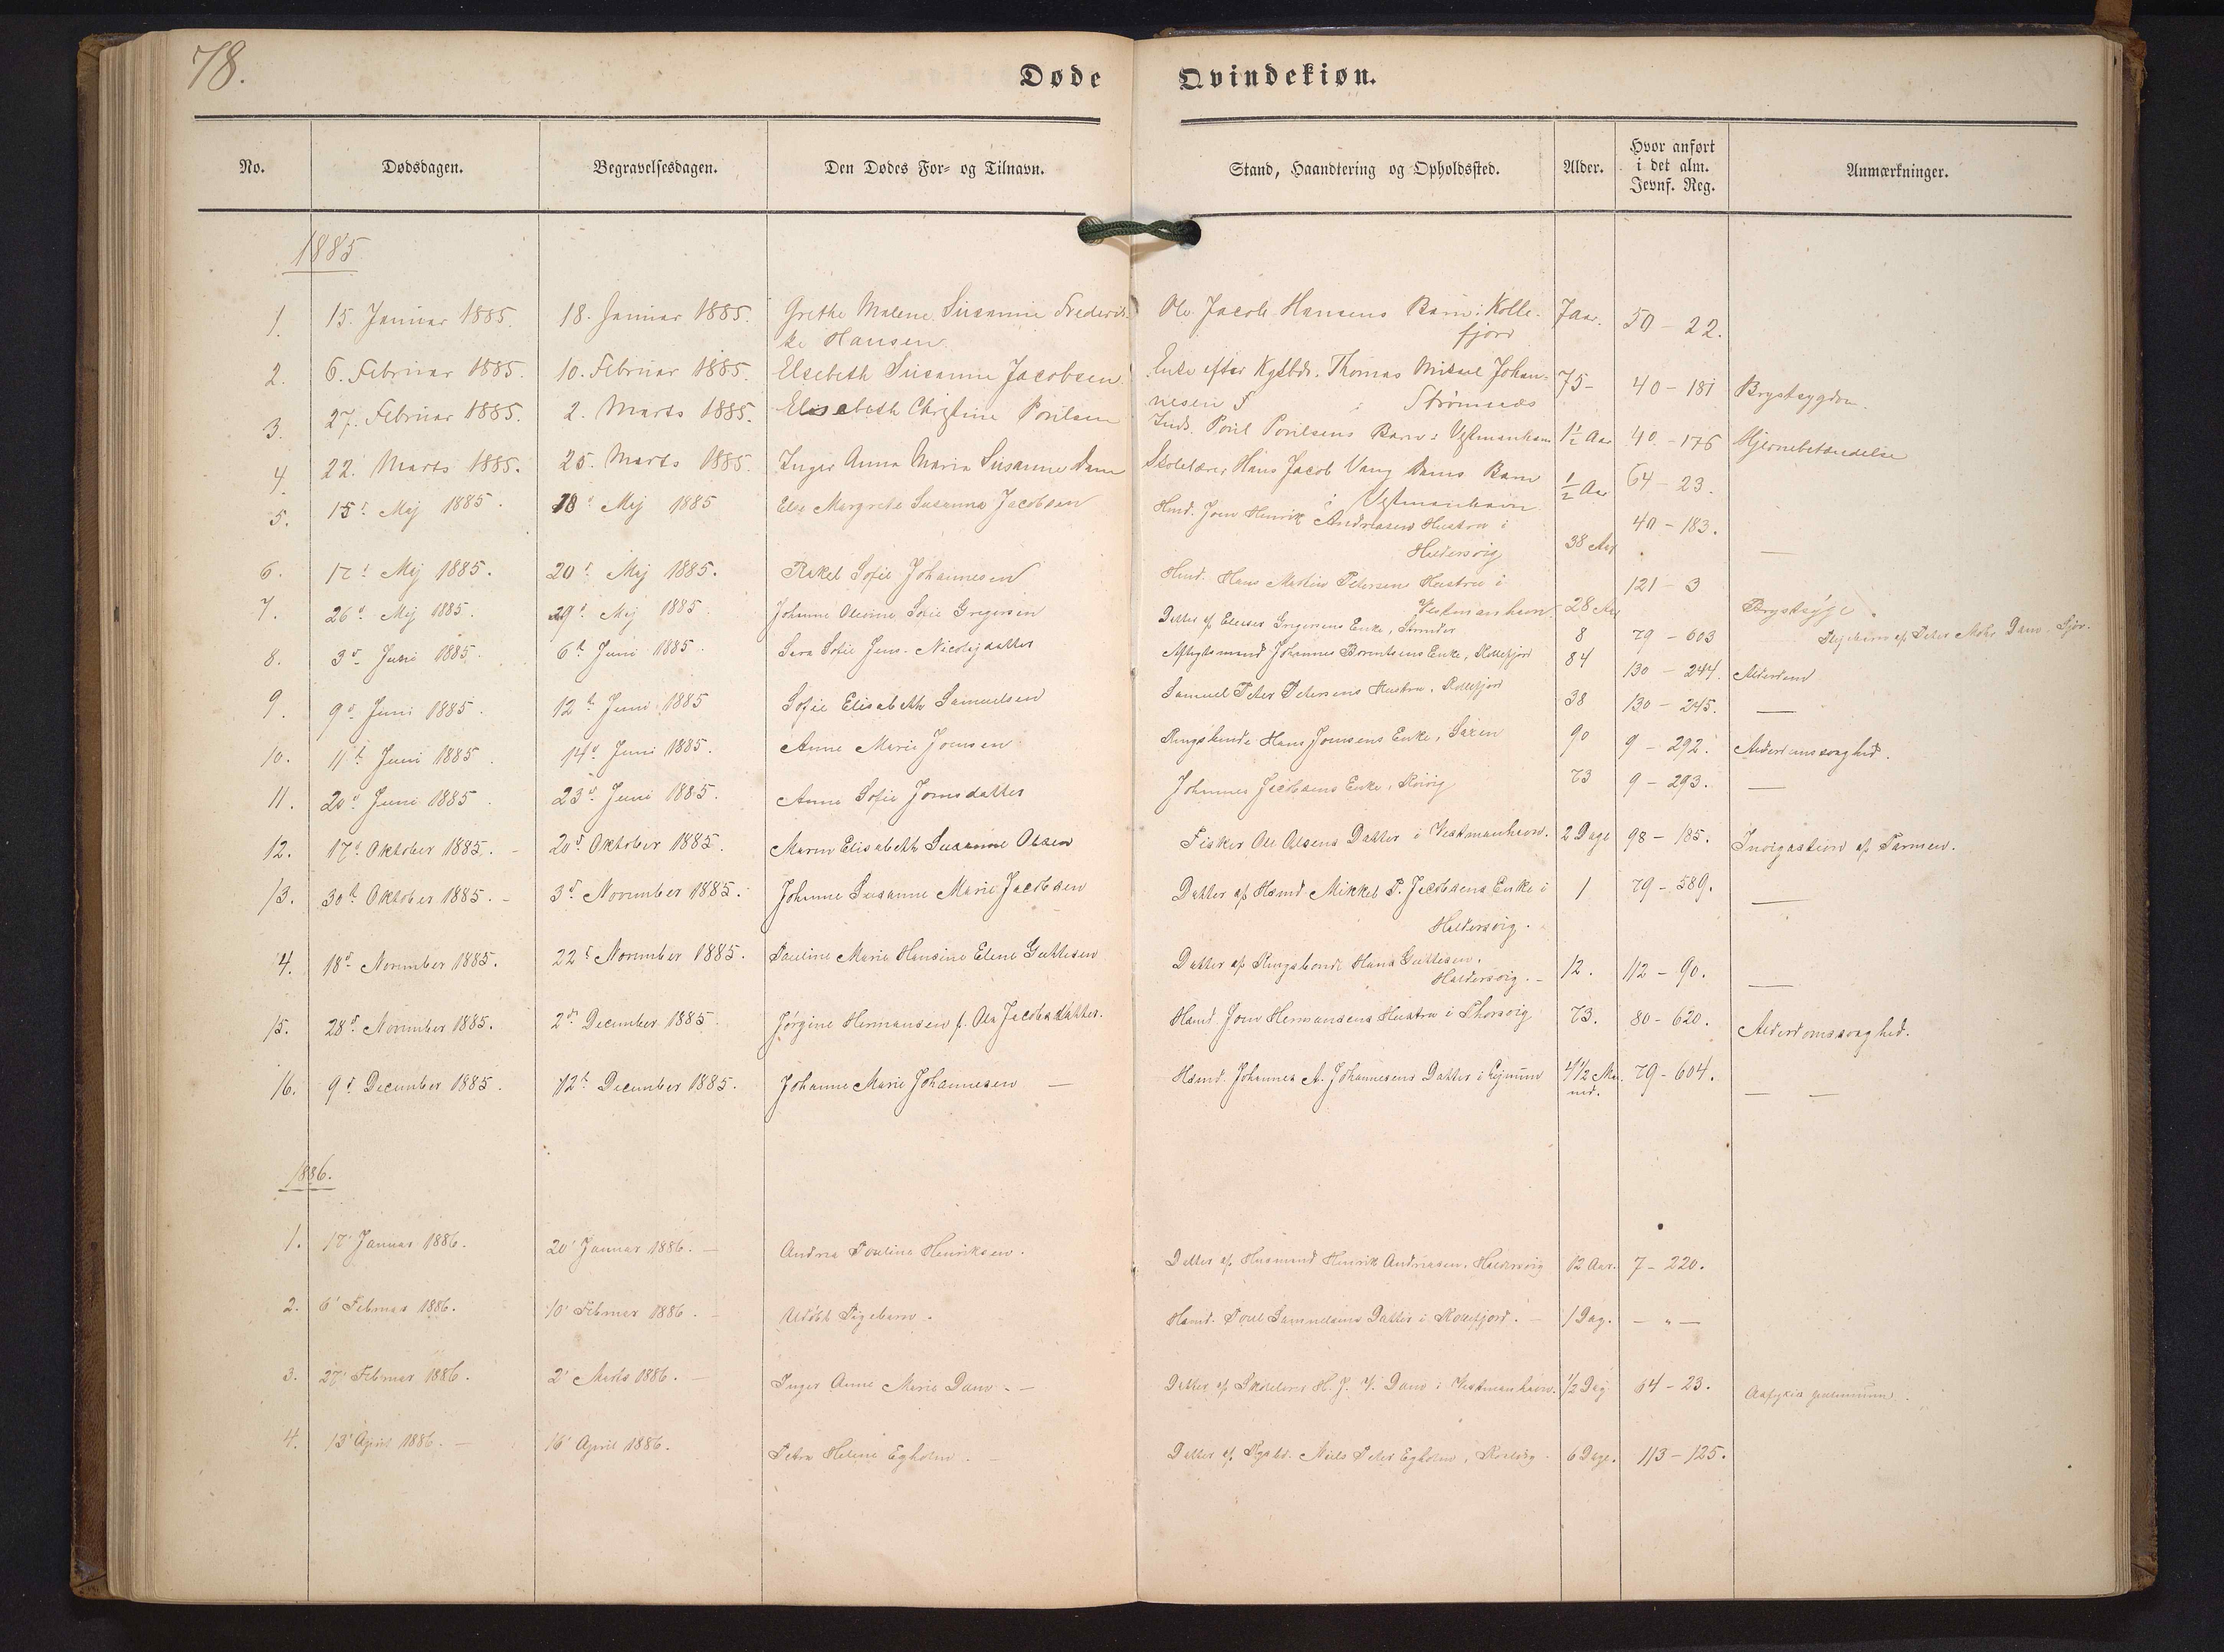 78.
Døde Qvindekiøn.
No. Dødsdagen. Begravelsesdagen. Den Dødes For- og Tilnavn. Stand, Haandtering og Opholdssted. Alder. Hvor anført i det alm. Jevnf. Reg. Anmærkninger.
1885
1. 15. Januar 1885. 18. Januar 1885. Grethe Malene Susanne Frederik- Ole Jacob Hansens Barn i Kolle- 7 Aar. 50 - 22.
ke Hansen. fjord
2. 6. Februar 1885. 10. Februar 1885. Elsebeth Susanne Jacobsen. Enke efter Kgsbdr. Thomas Mikael Johan- 75 - 40 - 181 Brystsygdom.
nesen i Strømnæs
3. 27. Februar 1885. 2. Marts 1885. Elisabeth Christine Poulsen Inds. Poul Poulsens Barn i Vestmanham 1½ Aar 40 - 176 Hjernebetændelse
4. 22. Marts 1885. 25. Marts 1885. Inger Anna Maria Susanne Dam Skolelærer Hans Jacob Vang Dams Barn ½ Aar 64 - 23.
i Vestmanhavn
5. 15d Maj 1885. 18d Maj 1885 Else Margrete Susanne Jacobsen Hmd. Joen Henrik Andreasens Hustru i 38 Aar 40 - 183. —
Haldersvig
6. 17d Maj 1885. 20d Maj 1885. Rakel Sofie Johannesen Hmd. Hans Martin Petersens Hustru i 28 Aar 121 - 3 Brystsyge.
Vestmanhavn
7. 26d Maj 1885. 29d Maj 1885. Johanne Olevine Sofie Gregersen Datter af Elieser Gregersens Enke, 8 79 - 603 Plejebarn af Peter Mohr Dam. Sjov.
8. 3d Juni 1885. 6t Juni 1885. Sara Sofie Jens-Nicolajdatter Aftægtsmand Johannes Berentsens Enke, Kollefjord 84 130 - 244. Alderdom
9. 9d Juni 1885. 12t Juni 1885 Sofie Elisabeth Samuelsen Samuel Peter Petersens Hustru. Kollefjord 38 130 - 245. —
10. 11t Juni 1885. 14d Juni 1885. Anne Marie Joensen Kongsbonde Hans Joensens Enke, Saxen 90 9 - 292. Alderdomssvaghed.
11. 20d Juni 1885. 23d Juni 1885. Anne Sofie Jonsdatter Johannes Jacobsens Enke, Kvivig 73 9 - 293. —
12. 17d Oktober 1885. - 20d Oktober 1885. Maren Elisabeth Susanne Olsen Fisker Ole Olsens Datter i Vestmanhavn. 2 Dage 98 - 185. Invigastion af Tarmen.
13. 30t Oktober 1885. - 3d November 1885. Johanne Susanne Marie Jacobsen Datter af Hsmd Mikkel P. Jacobsens Enke i 1 79 - 589. —
Haldersvig.
4. 18d November 1885. 22d November 1885. Pauline Marie Hansine Elene Guttesen Datter af Kongsbonde Hans Guttesen. 12. 112 - 90. —
Haldersvig. -
15. 28d November 1885. 2den December 1885. Jørgine Hermansen f. Ole Jacobsdatter. Hsmd. Joen Hermansens Hustru i Thorsvig 73. 80 - 620. Alderdomssvaghed.
16. 9d December 1885. 12t December 1885. Johanne Marie Johannesen — Hsmd. Johannes A. Johannesens Datter i Ejnum 4½ Ma- 79 - 604. — —
ned.
1886.
1. 17' Januar 1886. 20' Januar 1886. - Andrea Pouline Henriksen. Datter af Husmand Henrik Andreasen. Haldersvig 12 Aar. 7 - 220.
2. 6' Februar 1886. 10' Februar 1886. - Udøbt Pigebarn. Hsmd. Poul Samuelsens Datter i Kollefjord. - 1 Dag. — " —
3. 27' Februar 1886. 2' Marts 1886. - Inger Anne Marie Dam - - Datter af Skolelærer H. J. V. Dam i Vestmanhavn. ½ Dag 64 - 23. Asfyxia
4. 13' April 1886. - 16' April 1886. Petra Helene Egholm. - Datter af Kgsbd. Niels Peter Egholm, 6 Dage. 113 - 125.